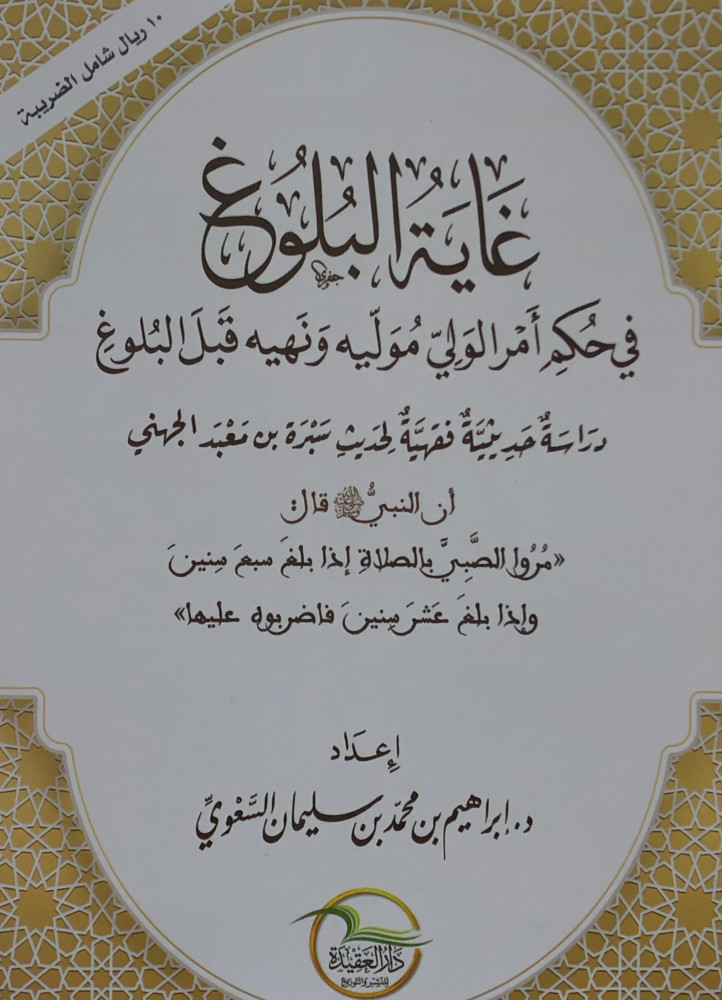 ١٠ ريال شامل الضريبة
غَايَةُ البُلُوغِ
في حُكمِ أَمْرِ الوَليّ مُوَلّيه وَنَهيه قَبلَ البُلوغِ
دِرَاسَةٌ حَدِيثيَّةٌ فِقهِيَّةٌ لحَديثِ سَبْرَة بن مَعْبَد الجهني
أن النبيَّ ﷺ قال:
«مُرُوا الصَّبيَّ بالصلاةِ إذا بلغَ سبعَ سِنينَ
وإذا بلغَ عَشرَ سِنينَ فاضربوه عليها»
إعدَاد
د. إبراهيم بن محمّد بن سليمان السَّعْويّ
دَارُ العَقِيدَة
للنشر والتوزيع